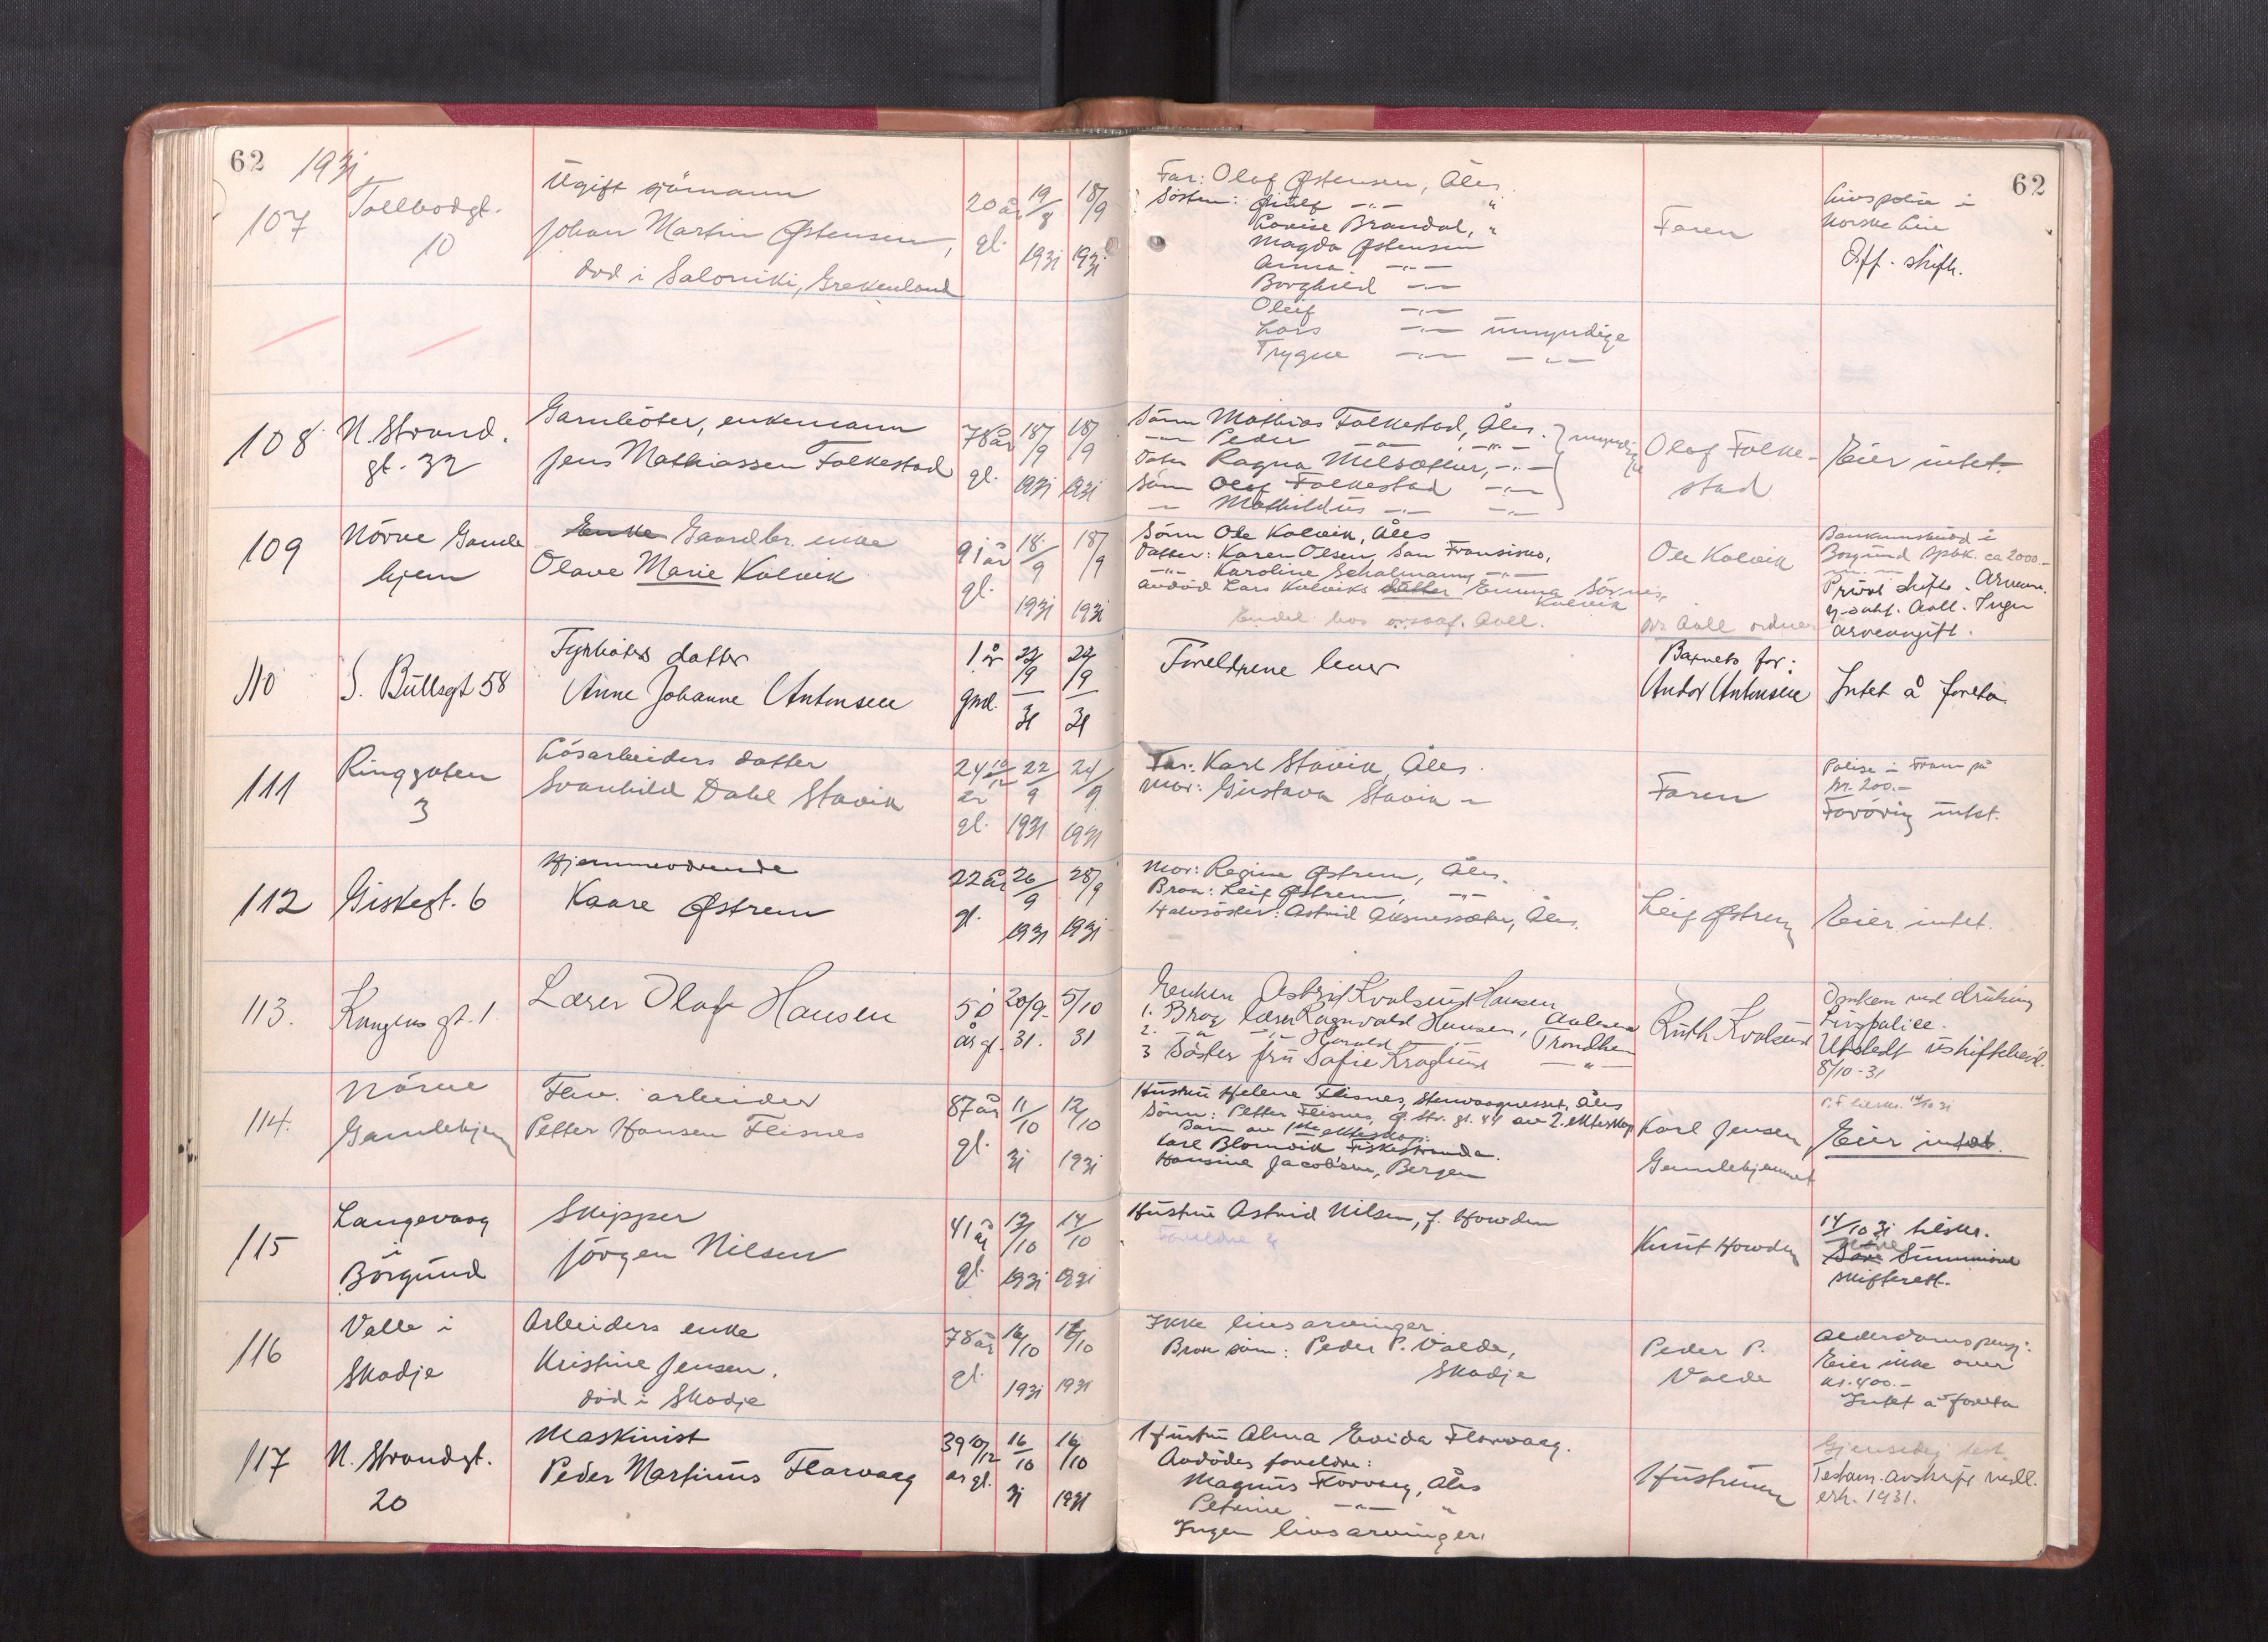 62 1931
62
107
Tollbodgt.
10
Ugift sjömann
Johan Martin Østensen,
död i Saloniki, Grekenland
20 år
gl.
19/8
1931
18/9
1931
Far: Olaf Østensen, Åles.
Søsken:
Lovise Brandal, "
Magda Østensen
Anna -"-
Borghild -"-
Oleif -"-
Lars -"- umyndige
Trygve -"- -"-
Faren
Livspolise i
Norske Liv
Off. skifte.
108
N. Strand.
gt. 32
Garnböter, enkemann
Jens Mathiassen Folkestad
78 år
gl.
18/9
1931
18/9
1931
Sönn Mathias Folkestad, Åles.
-"- Peder -"- -"-
Dater Ragna Melsæther, -"-
Sönn Olaf Folkestad -"-
" Mathildus -"- -"-
myndige
Olaf Folke-
stad
Eier intet.
109
Nörve Gamle
hjem
Enke Gaardbr. enke
Olave Marie Kolvik
91 år
gl.
18/9
1931
18/9
1931
Sönn Ole Kolvik, Åles
Datter: Karen Olsen, San Fransisko,
-"- Karoline Schalmann, -"-
avdöd Lars Kolviks datter Emma Sörnes,
Kolvik
Endel hos orsaf. Aall.
Ole Kolvik
ors. Aall ordner
Bankinnskudd i
Borgund spbk. ca 2000.-
Privat skifte. Arvean.
Aall. Ingen
arveavgift.
110
S. Bullsgt 58
Fyrböters datter
Anne Johanne Antonsen
1 år
gml.
22/9
31
22/9
31
Foreldrene lever
Barnets far:
Andor Antonsen
Intet å foreta
111
Ringgaten
3
Lösarbeiders datter
Svanhild Dahl Stavik
24 10/12
år
gl.
22/9
1931
24/9
1931
Far: Karl Stavik, Åles.
Mor: Gustava Stavik "
Faren
Polise i Fram på
kr. 200.-
Forövrig intet.
112
Giskegt. 6
Hjemmeværende
Kaare Østrem
22 år
gl.
26/9
1931
28/9
1931
Mor: Regine Østrem, Åles.
Bror: Leif Østrem, -"-
Halvsöster: Astrid Aksnessæter, Åles.
Leif Østrem
Eier intet.
113.
Kongens gt. 1.
Lærer Olaf Hansen
50
år gl.
20/9-
31.
5/10
31
Enken Astrid Kvalsund Hansen
1. Bror lærer Ragnvald Hansen, Aalesund
2. -"- -"- Harald -"- Trondhem
3 Söster fru Sofie Kraglund -"-
Ruth Kvalsund
Omkom ved drukning
Livspolice.
Utstedt uskiftebevil.
8/10-31
114.
Nörve
Gamlehjem
Fav. arbeider
Petter Hansen Flisnes
87 år
gl.
11/10
31
12/10
1931
Hustru Helene Flisnes, Stenvaagnesset, Åles
Sönn: Petter Flisnes, Ö. Str. gt. 44 av 2. ekteskap
Barn av 1ste ekteskap.
Karl Blomvik Fiskestranda.
Hansine Jacobsen, Bergen
Karl Jensen
Gamlehjemmet
14/10 31
Eier intet.
115
Langevaag
i
Borgund
Skipper
Jörgen Nilsen
41 år
gl.
13/10
1931
14/10
1931
Hustru Astrid Nilsen, f. Howden
Foreldre
Knut Howden
14/10 31
Sunnmöre
skifterett.
116
Valle i
Skodje
Arbeiders enke
Kristine Jensen.
död i Skodje
78 år
gl.
16/10
1931
16/10
1931
Ikke livsarvinger
Bror sönn: Peder P. Valde,
Skodje
Peder P.
Valde
Alderdomspensj.
Eier ikke over
kr. 400.-
Intet å foreta
117
N. Strandgt.
20
Maskinist
Peder Martinus Flarvaag
39 10/12
år gl.
16/10
31
16/10
1931
Hustru Alma Evida Florvaag.
Avdödes foreldre:
Magnus Florvaag, Åles
Petrine -"- "
Ingen livsarvinger.
Hustruen
Gjensidig test.
Testam. avskrift vedl.
erh. 1931.